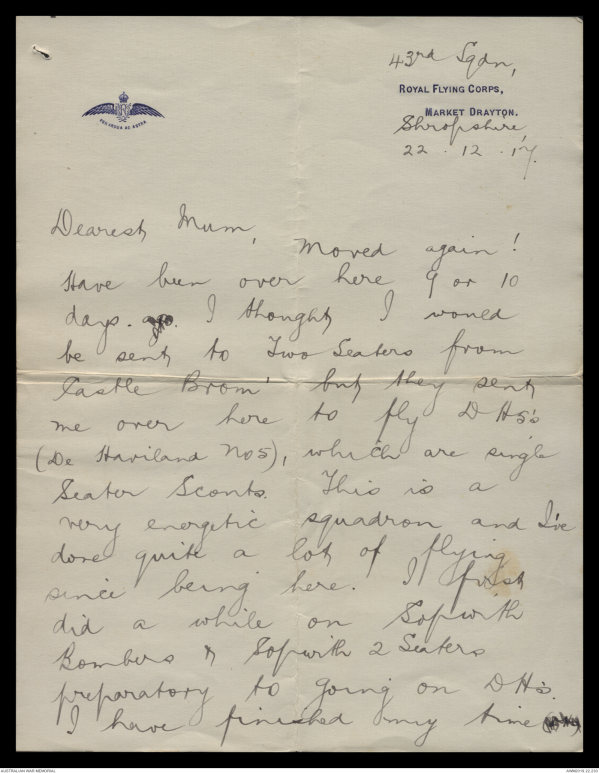 43rd Sqdn,
ROYAL FLYING CORPS,
MARKET DRAYTON.
Shropshire,
22 . 12 . 17.
PER ARDUA AD ASTRA
Dearest Mum,
Moved again!
Have been over here 9 or 10
days. I thought I would
be sent to Two Seaters from
Castle Brom' but they sent
me over here to fly DH5's
(De Haviland No5), which are single
Seater Scouts. This is a
very energetic squadron and I've
done quite a lot of flying
since being here. I first
did a while on Sopwith
Bombers & Sopwith 2 Seaters
preparatory to going on DH's.
I have finished my time
AUSTRALIAN WAR MEMORIAL